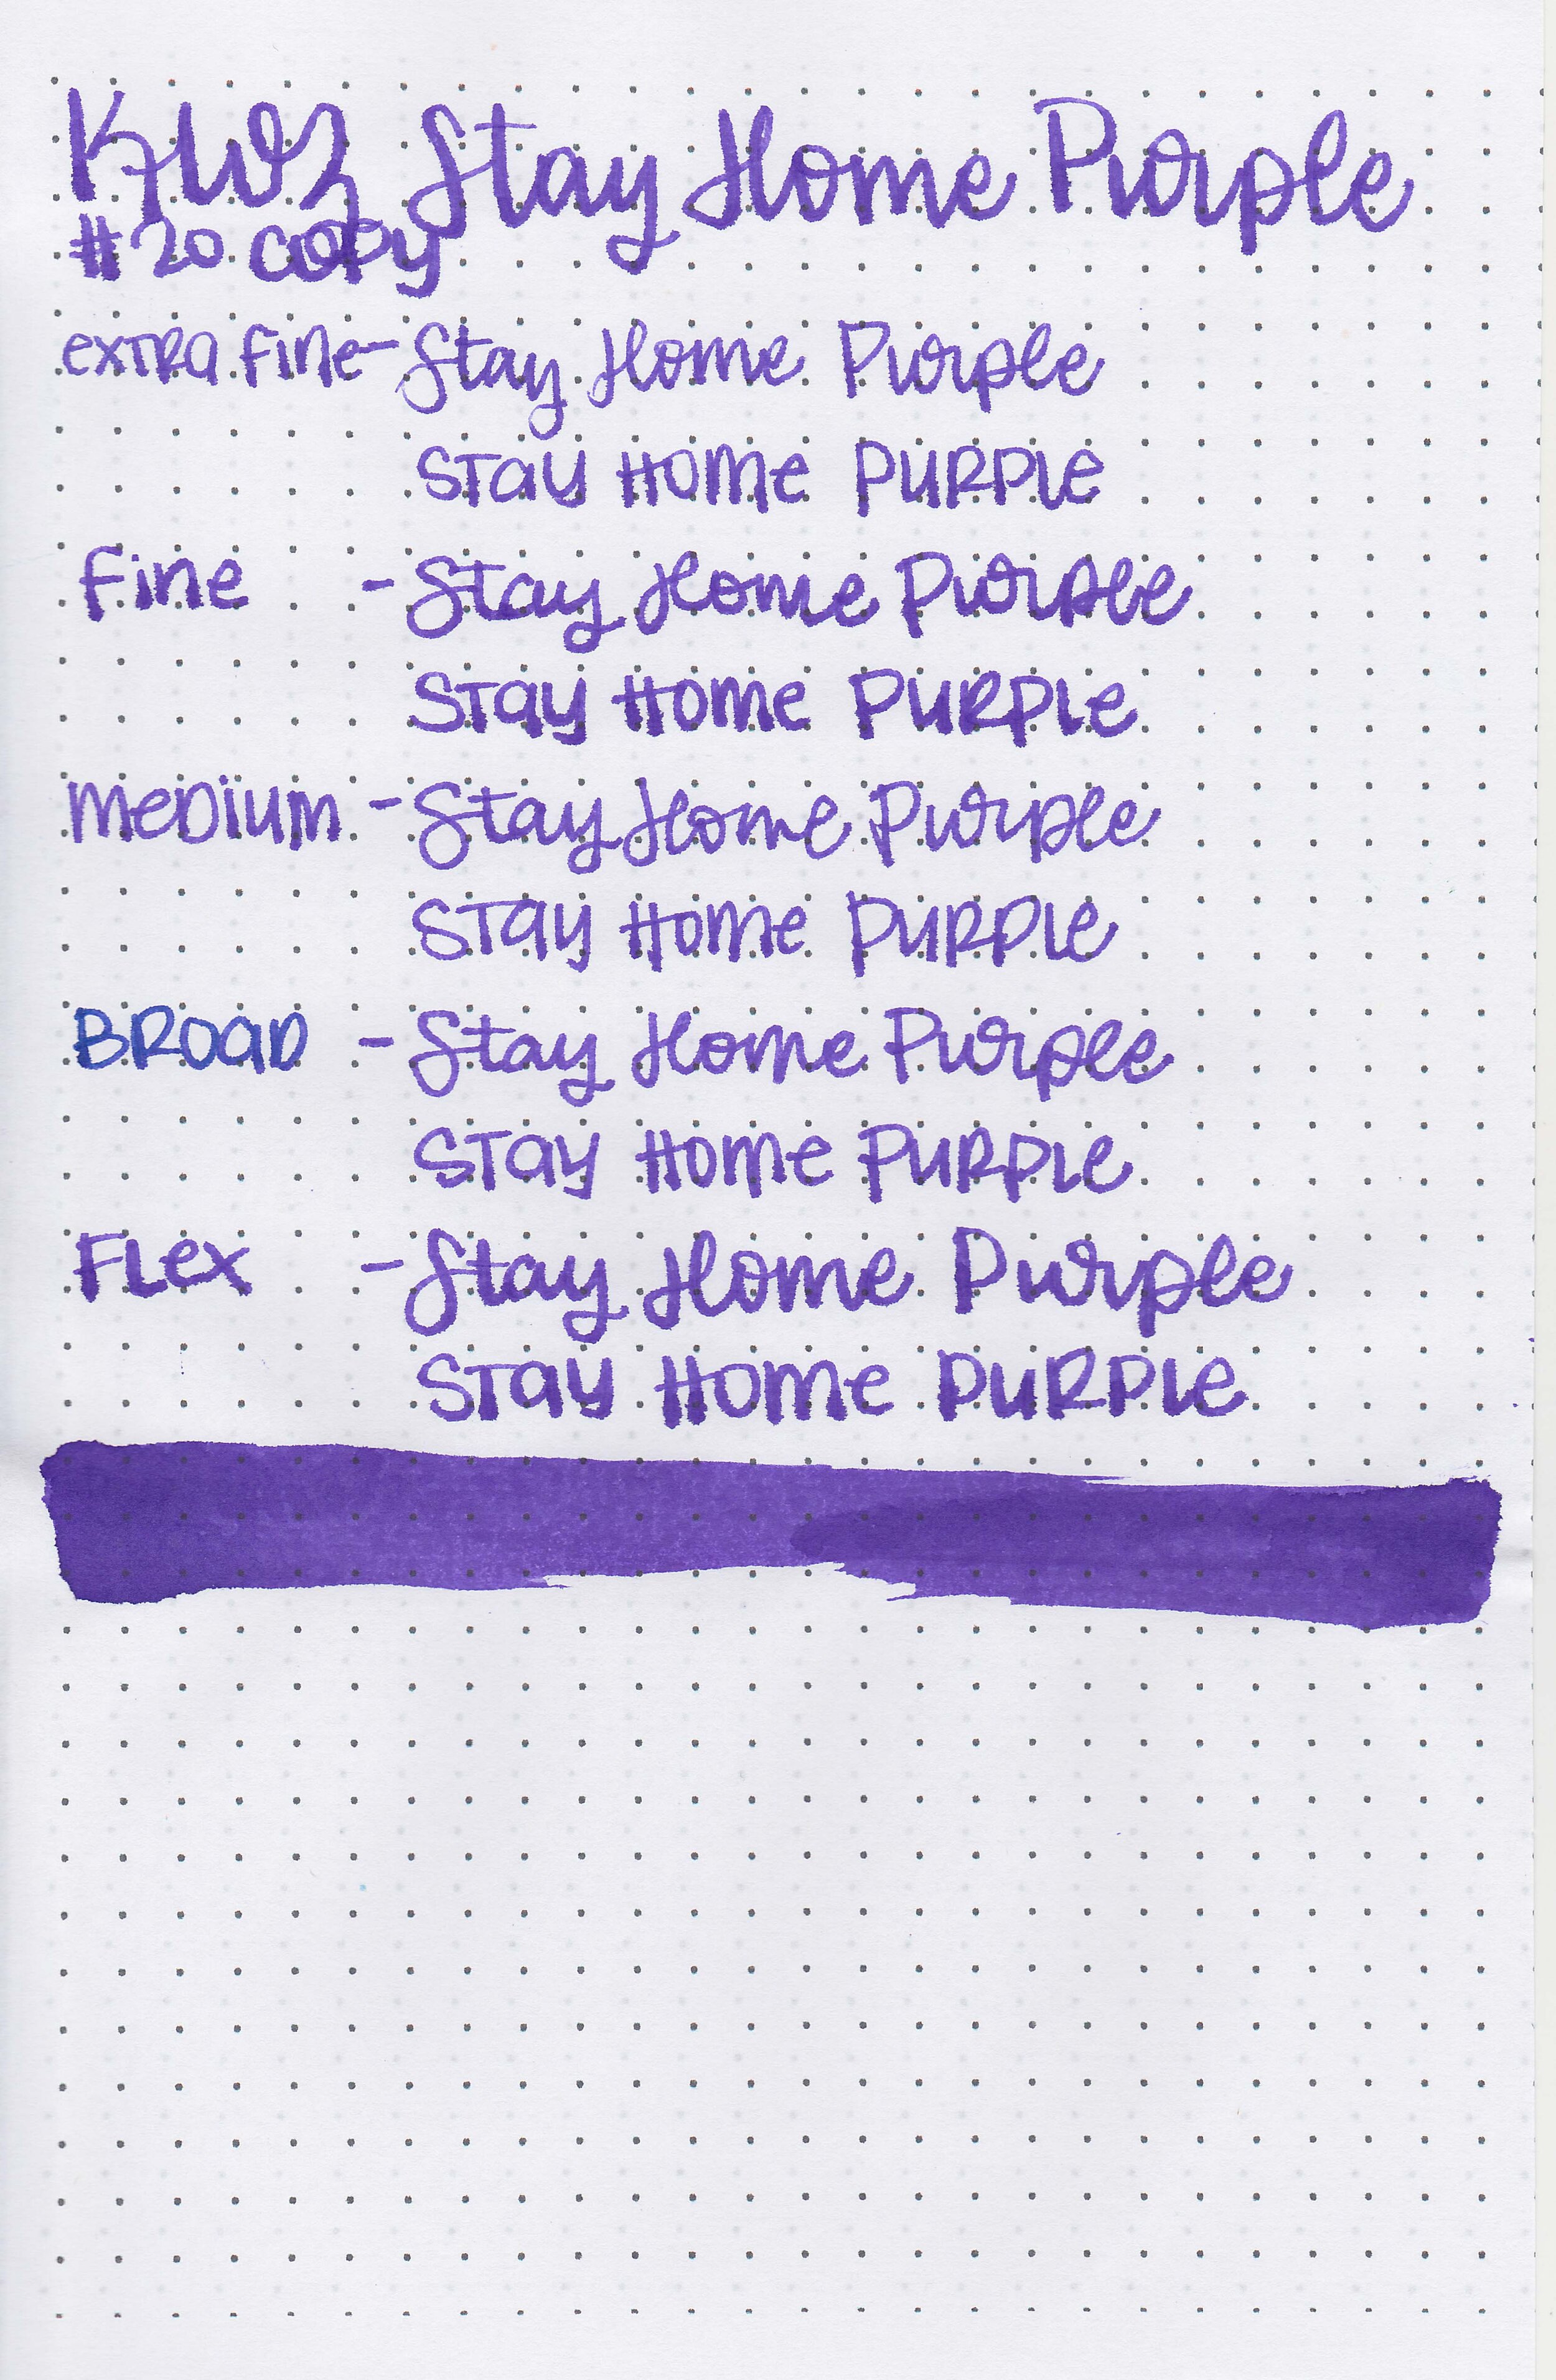 KWZ Stay Home Purple
#20 copy
extra fine - Stay Home Purple
Stay Home Purple
Fine - Stay Home Purple
Stay Home Purple
Medium - Stay Home Purple
Stay Home Purple
Broad - Stay Home Purple
Stay Home Purple
Flex - Stay Home Purple
Stay Home Purple